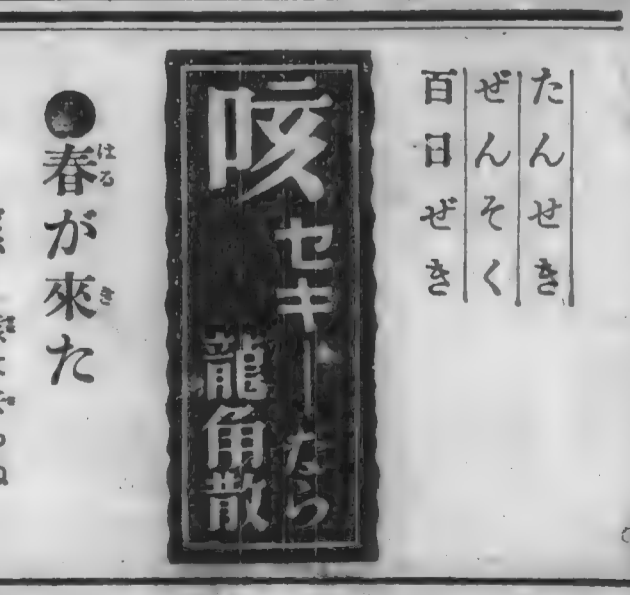 たんせき
ぜんそく
百日ぜき
咳
セキーなら
龍角散
●春が來た
はる
き